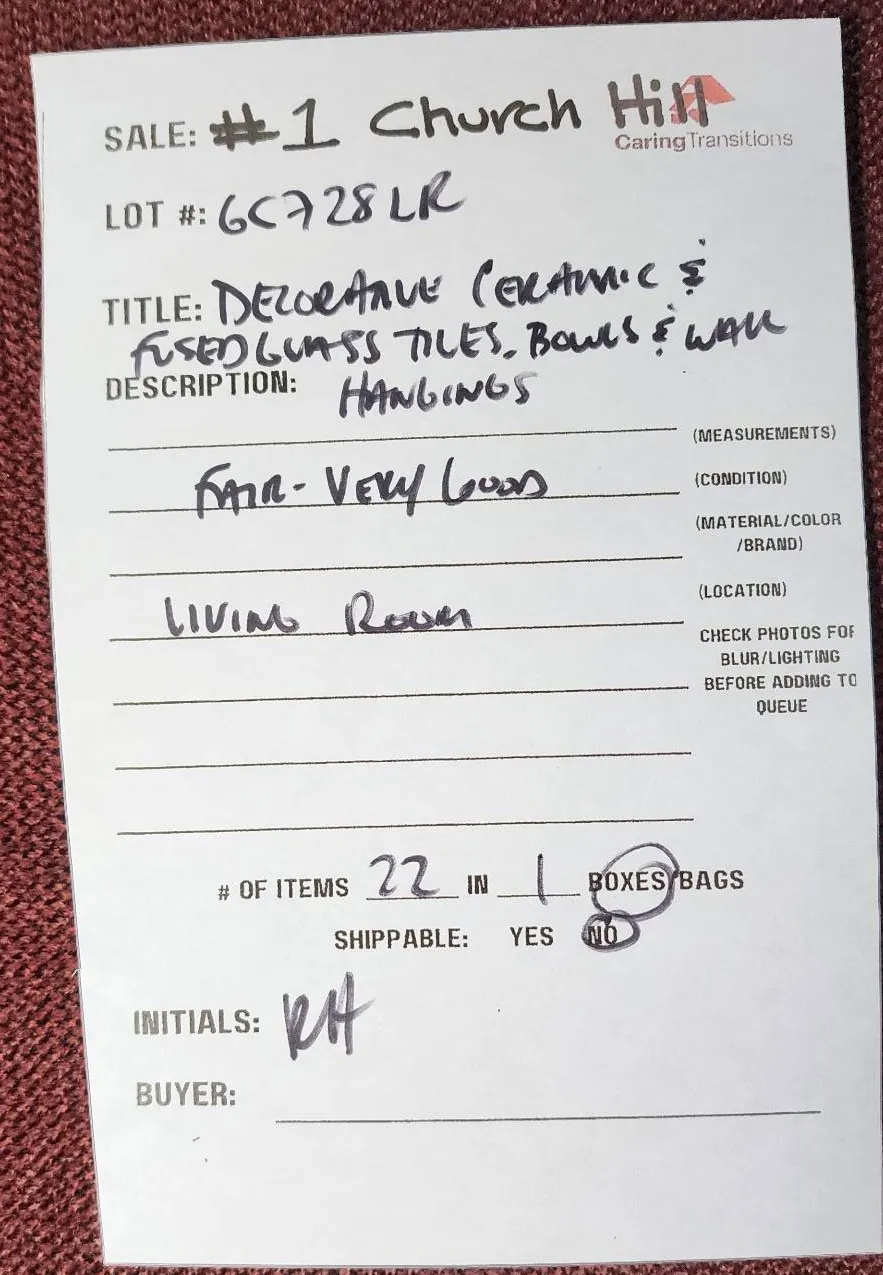 SALE: #1 Church Hill
CaringTransitions
LOT #: 6C728LR
TITLE: DECORATIVE CERAMIC &
FUSED GLASS TILES, BOWLS & WALL
DESCRIPTION: HANGINGS
(MEASUREMENTS)
FAIR - VERY GOOD (CONDITION)
(MATERIAL/COLOR
/BRAND)
LIVING ROOM (LOCATION)
CHECK PHOTOS FOR
BLUR/LIGHTING
BEFORE ADDING TO
QUEUE
# OF ITEMS 22 IN 1 BOXES/BAGS
SHIPPABLE: YES NO
INITIALS: RH
BUYER: